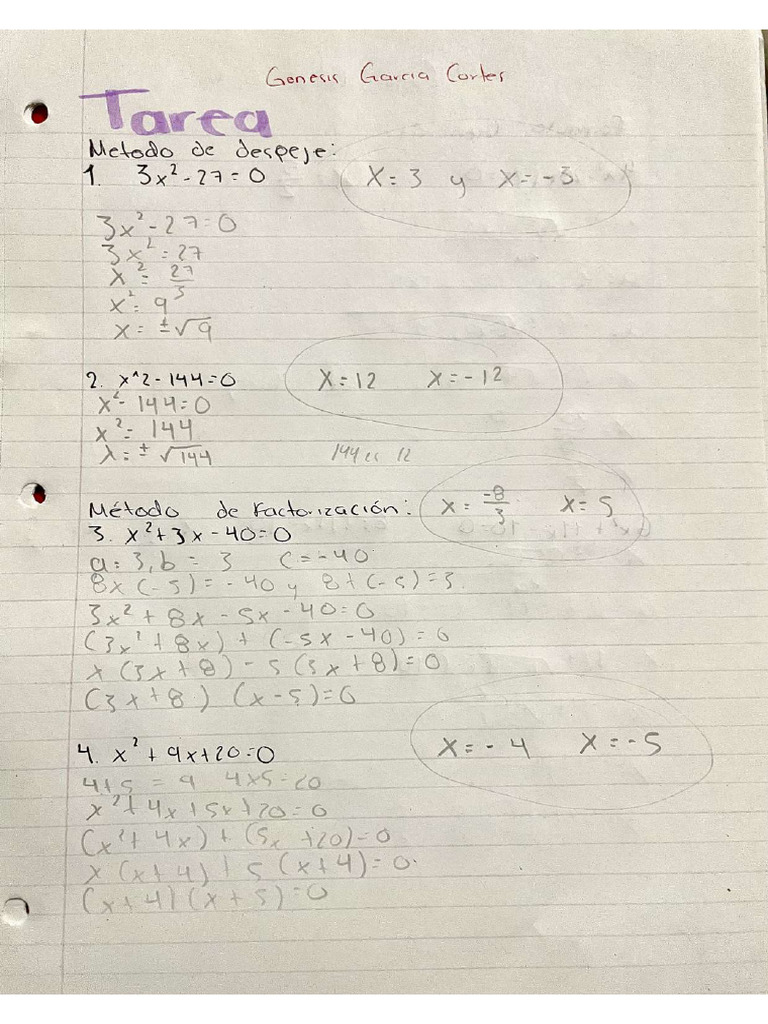 Genesis Garcia Cortes
Tarea
Metodo de despeje:
1. 3x²-27=0
X=3 y X=-3
3x²-27=0
3x²=27
x²=27/3
x²=9
x=±√9
2. x^2-144=0
X=12 X=-12
x²-144=0
x²=144
x=±√144
144 es 12
Método de Factorización:
X=-8/3 X=5
3. x²+3x-40=0
a=3, b=3 C=-40
8x(-5)=-40 y 8+(-5)=3
3x²+8x-5x-40=0
(3x²+8x)+(-5x-40)=0
x(3x+8)-5(3x+8)=0
(3x+8)(x-5)=0
4. x²+9x+20=0
X=-4 X=-5
4+5=9 4x5=20
x²+4x+5x+20=0
(x²+4x)+(5x+20)=0
x(x+4)+5(x+4)=0
(x+4)(x+5)=0